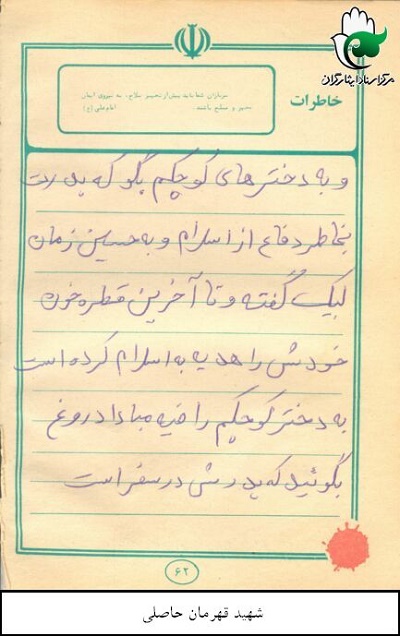 مرکز اسناد ایثارگران
خاطرات
سربازان، شما باید پیش از مجهز سلاح، به نیروی ایمان
مجهز و مسلح باشند.
امام علی (ع)
و به دخترهای کوچکم بگو که پدرت
بخاطر دفاع از اسلام و به حسین زمان
لبیک گفته و تا آخرین قطره خون
خودش را هدیه به اسلام کرده است
به دختر کوچکم راضیه مبادا دروغ
بگوئید که پدرش در سفر است
۶۲
شهید قهرمان حاصلی